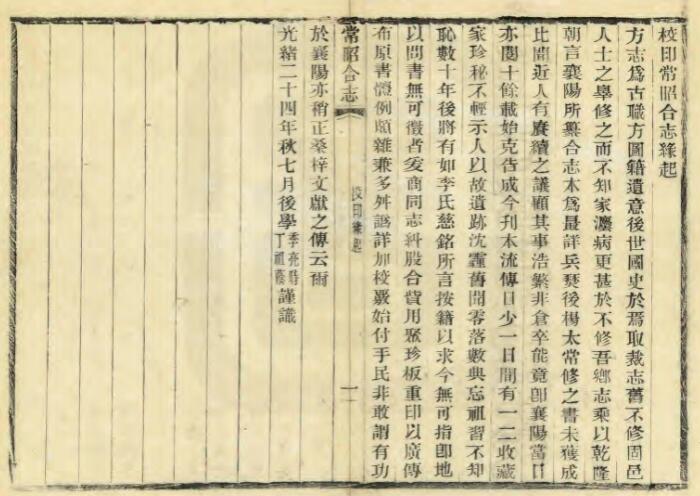 校印常昭合志緣起
方志爲古職方圖籍遺意後世國史於焉取裁志舊不修固邑
人士之辠修之而不知家灋病更甚於不修吾鄉志乘以乾隆
朝言襄陽所纂合志本爲最詳兵燹後楊太常修之書未獲成
比聞近人有賡續之議顧其事浩繁非倉卒能竟卽襄陽當日
亦閱十餘載始克告成今刊本流傳日少一日間有一二收藏
家珍秘不輕示人以故遺跡沈霾舊聞零落數典忘祖習不知
恥數十年後將有如李氏慈銘所言按籍以求今無可指卽地
以問書無可徵者爰商同志糾股合貲用聚珍板重印以廣傳
布原書體例頗雜兼多舛譌詳加校覈始付手民非敢謂有功
常昭合志
校印緣起
一
於襄陽亦稍正桑梓文獻之傳云爾
光緒二十四年秋七月後學季亮時丁祖蔭謹識